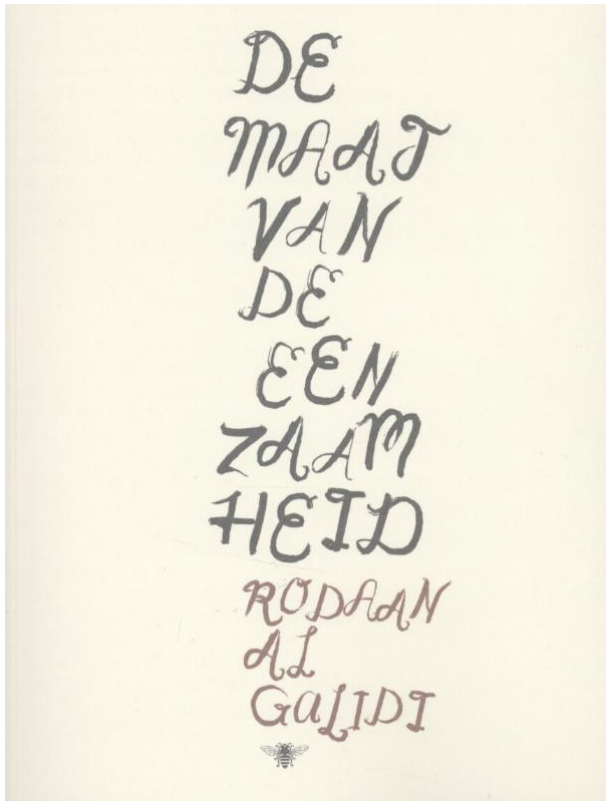 DE
MAAT
VAN
DE
EEN
ZAAM
HEID
RODAAN
AL
GALIDI